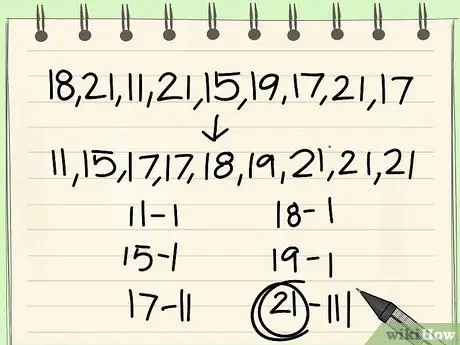 18,21,11,21,15,19,17,21,17
↓
11,15,17,17,18,19,21,21,21
11-1 18-1
15-1 19-1
17-11 21-111
wikiHow